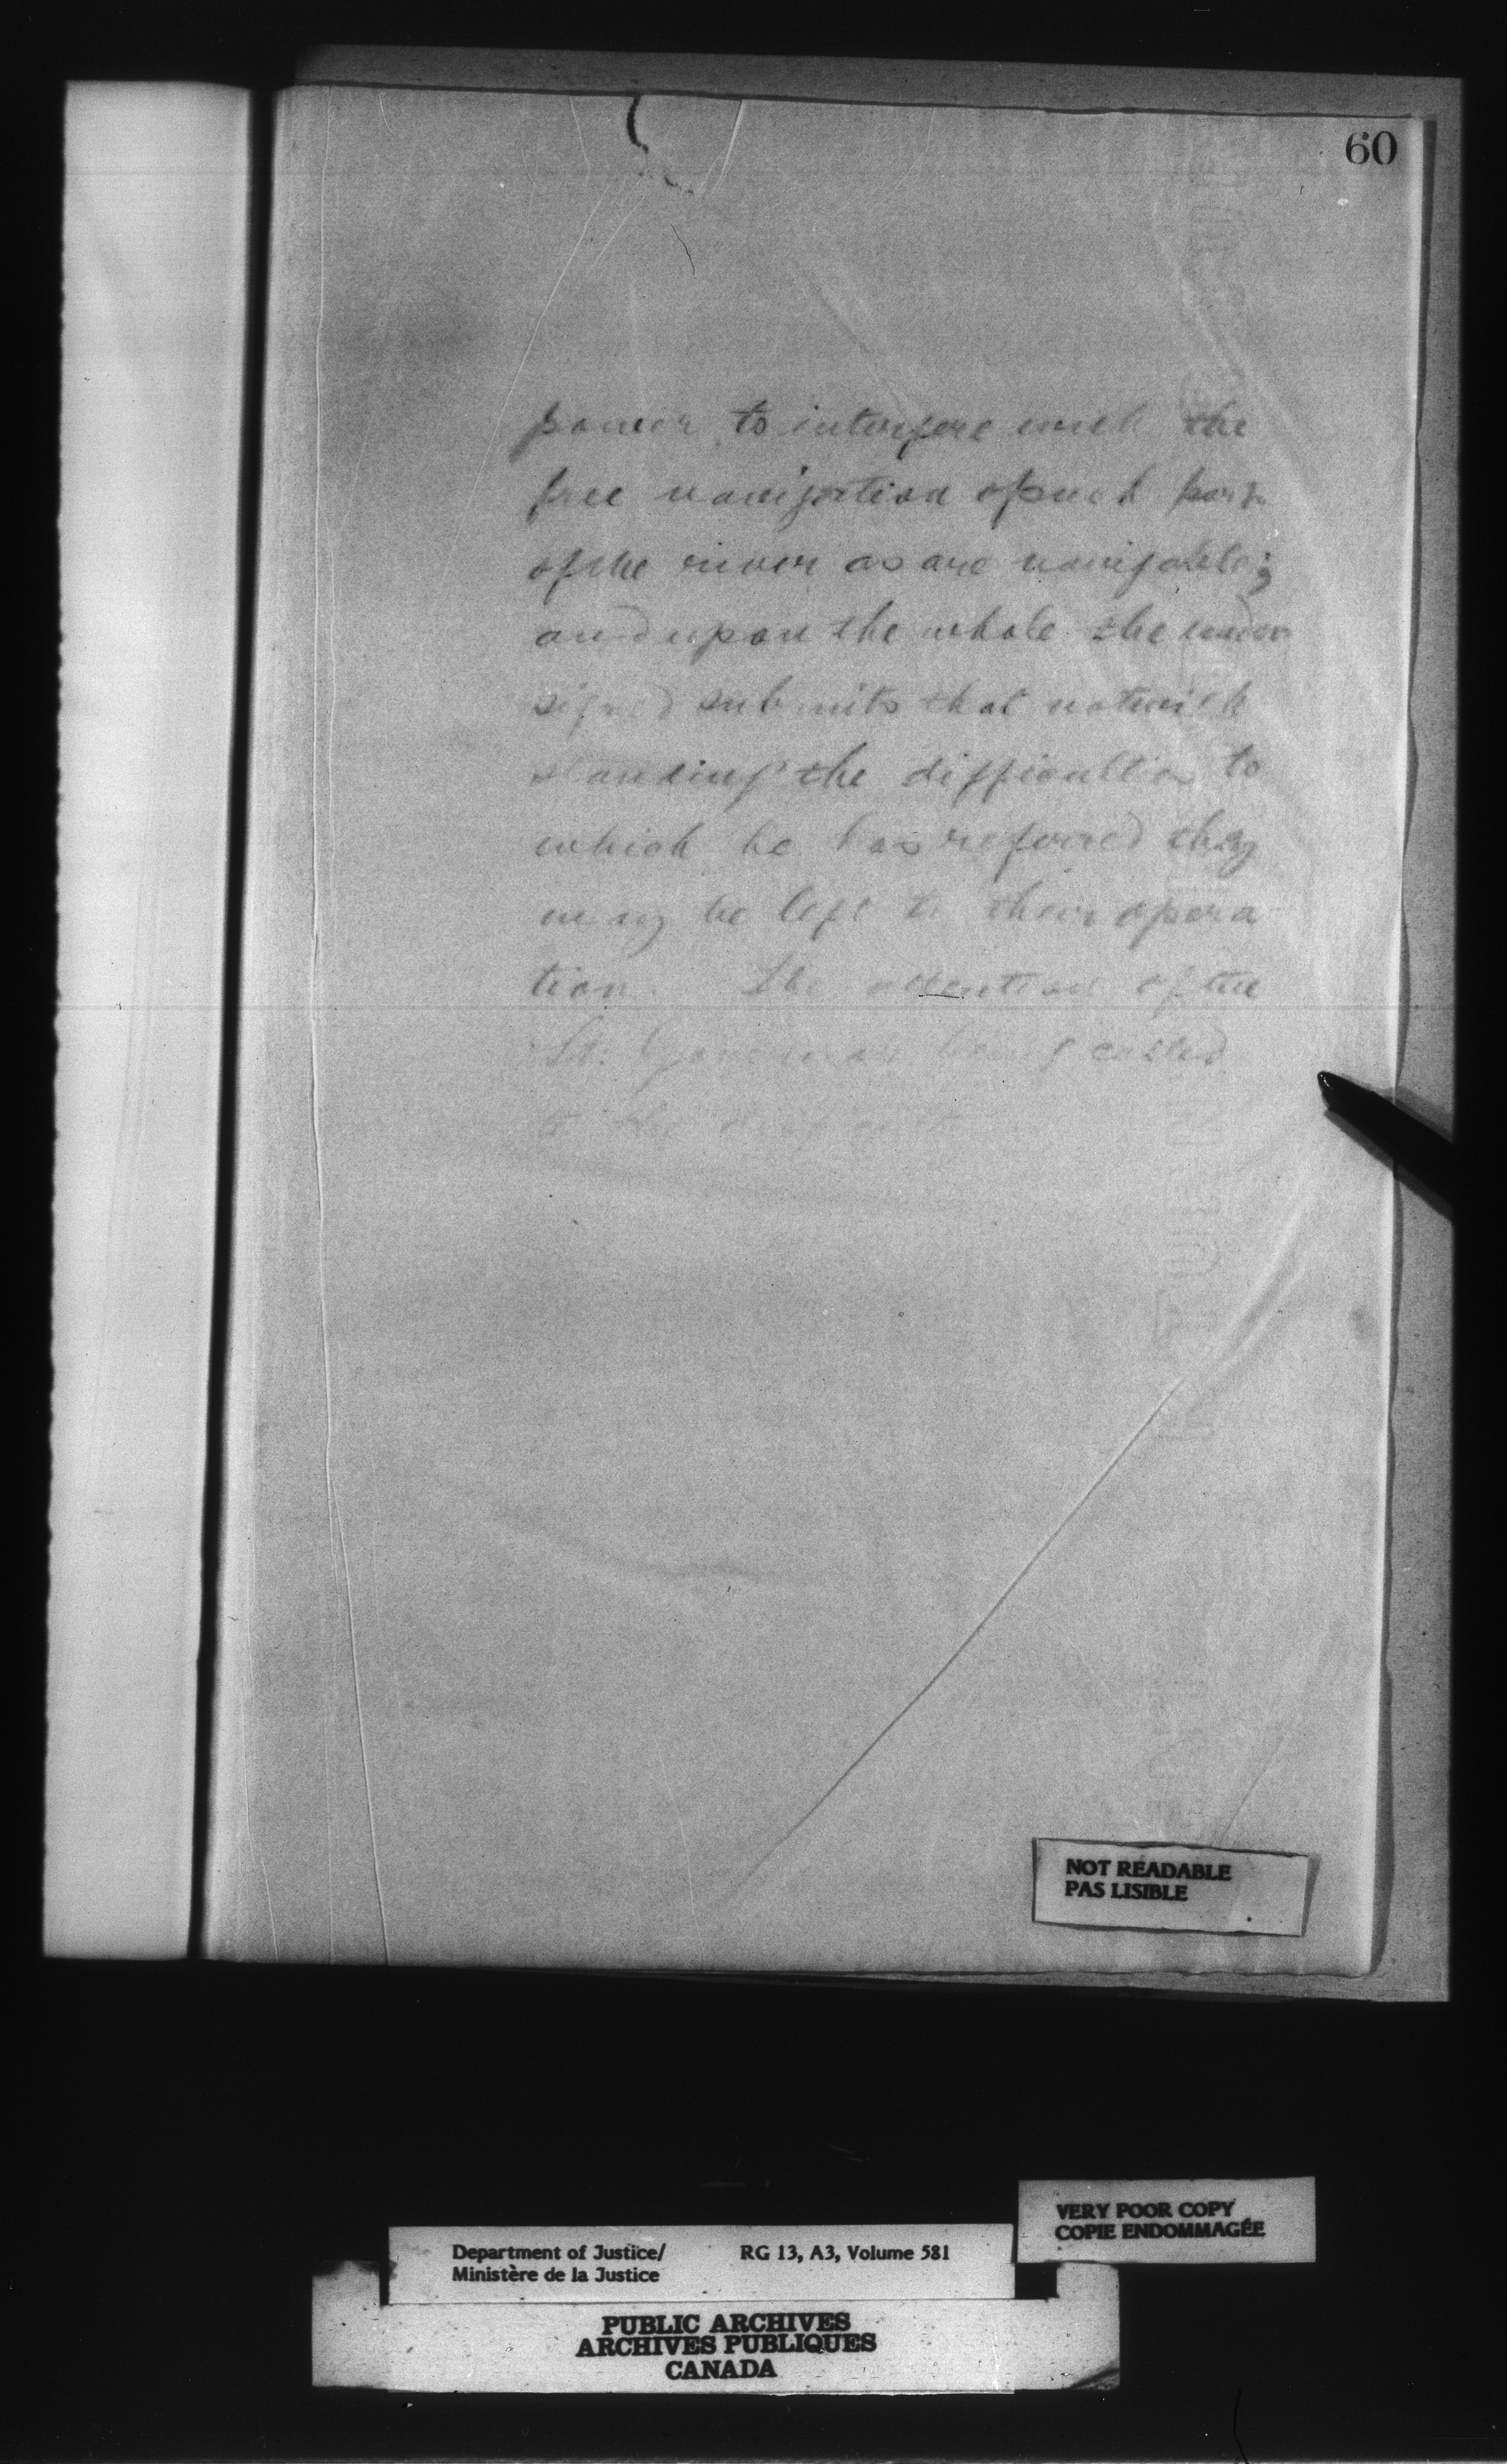 60
power to interfere with the
free navigation of such part
of the river as are navigable;
and upon the whole the under
signed submits that notwith
standing the difficulties to
which he has referred they
may be left to their opera
tion. The attention of the
Lt. Governor being called
to the
NOT READABLE
PAS LISIBLE
VERY POOR COPY
COPIE ENDOMMAGÉE
Department of Justice/ RG 13, A3, Volume 581
Ministère de la Justice
PUBLIC ARCHIVES
ARCHIVES PUBLIQUES
CANADA